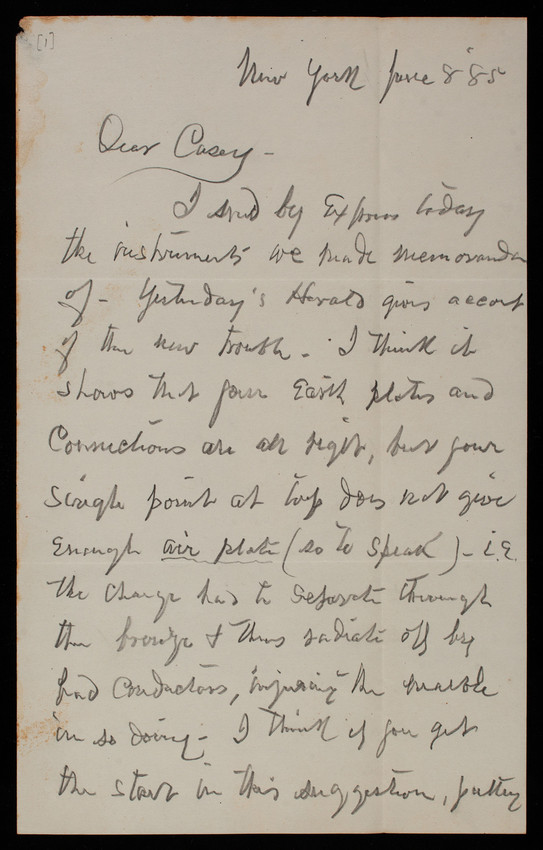 [1]
New York June 8 '85
Dear Casey -
I send by Express today
the instruments we made memoranda
of - Yesterday's Herald gives account
of the new trouble - I think it
shows that your Earth plates and
Connections are all right, but your
single point at top does not give
Enough air plate (so to speak) - i.e.
the charge had to separate through
the & thus radiate off by
bad conductors, injuring the marble
in so doing - I think if you get
the start in this suggestion, putting